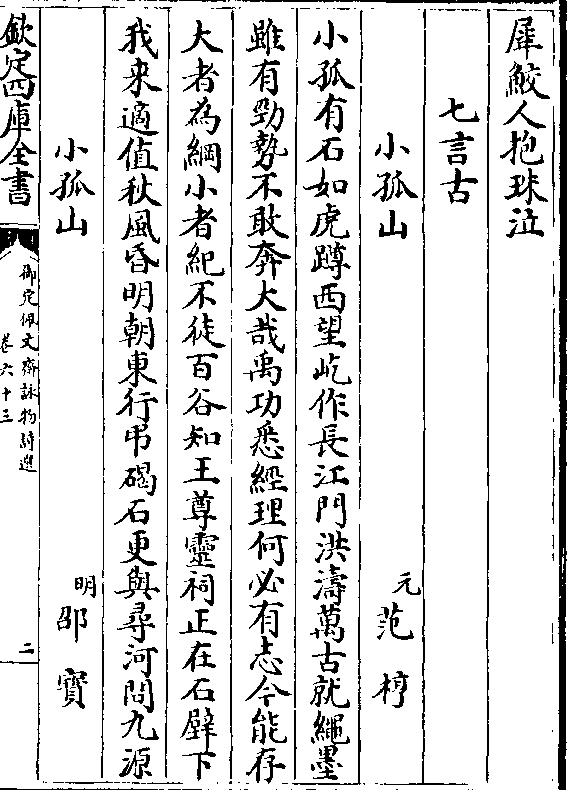 犀鮫人抱珠泣
七言古
小孤山　元　范梈
小孤有石如虎蹲西望屹作長江門洪濤萬古就繩墨
雖有勁勢不敢奔大哉禹功悉經理何必有志今能存
大者為綱小者紀不徒百谷知王尊靈祠正在石壁下
我来適值秋風昏明朝東行弔碣石更與尋河問九源
小孤山　明　邵寶
欽定四庫全書
御定佩文齋詠物詩選
卷六十三
二